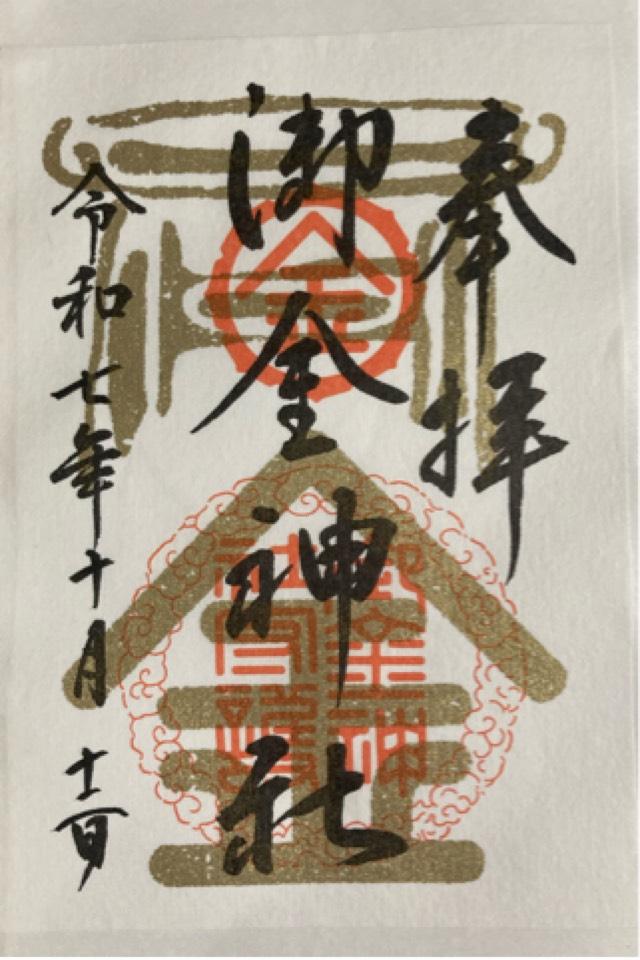 奉拝
御金神社
令和七年十月十二日
金
御金神